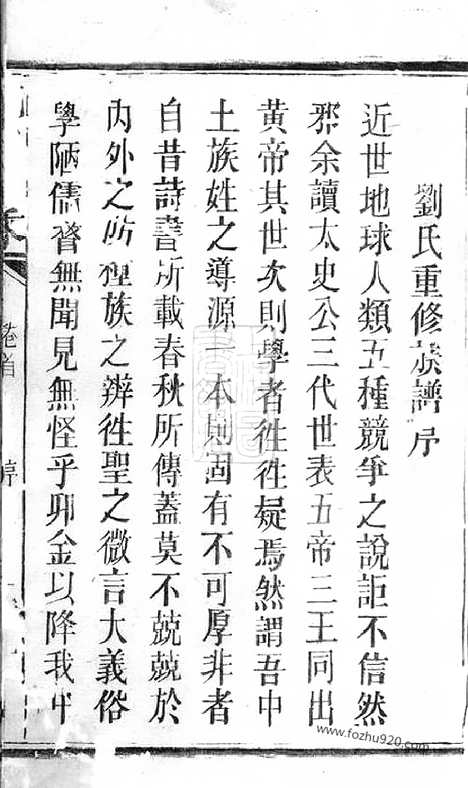 劉氏重修族譜序
近世地球人類五種競爭之說詎不信然
邪余讀太史公三代世表五帝三王同出
黃帝其世次則學者徃徃疑焉然謂吾中
土族姓之導源 本則固有不可厚非者
自昔詩書所載春秋所傳蓋莫不兢兢於
內外之所 種族之辨徃聖之微言大義俗
學陋儒瞀無聞見無怪乎卯金以降我中
氏
卷首
序
www.fozhu920.com